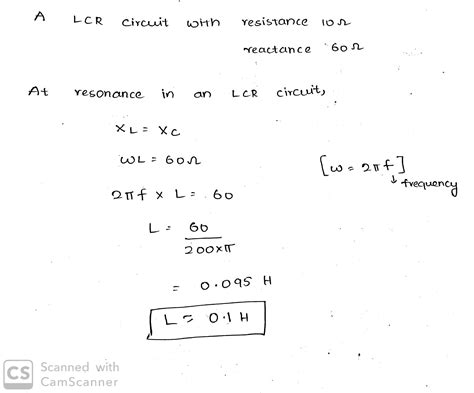 A LCR circuit with resistance 10 Ω
reactance 60 Ω
At resonance in an LCR circuit,
XL = XC
WL = 60 Ω
[ω = 2πf]
↓ frequency
2πf × L = 60
L = 60
200×π
= 0.095 H
L ≈ 0.1 H
CS Scanned with
CamScanner